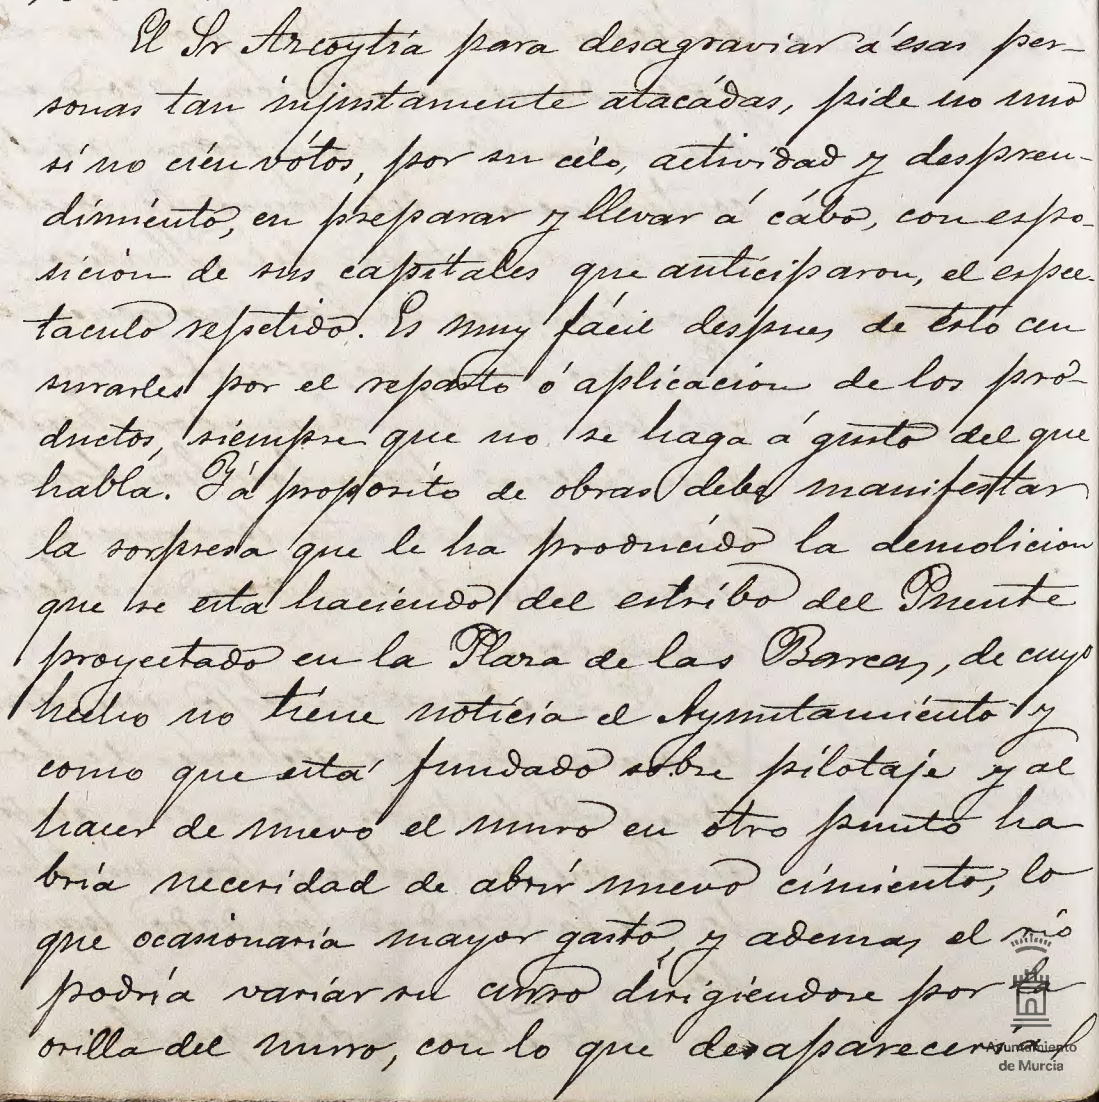 El Sr Arcoytia para desagraviar á esas per-
sonas tan injustamente atacádas, pide no uno
sí no cién vótos, por su célo, actividad y despren-
dimiénto, en preparar y llevar á cábo, con espo-
sicion de sus capitales que anticiparon, el espec-
taculo repetido. Es muy fácil despues de esto cen
surarles por el reparto ó aplicacion de los pro-
ductos, siempre que no se haga á gusto del que
habla. Y á proposito de obras debe manifestar
la sorpresa que le ha producido la demolicion
que se esta haciendo del estribo del Puente
proyectado en la Plaza de las Barcas, de cuyo
hecho no tiene noticia el Ayuntamiénto y
como que está fundado sobre pilotaje y al
hacer de nuevo el muro en otro punto ha
bria necesidad de abrir nuevo cimiento, lo
que ocasionaria mayor gasto, y ademas el rio
podria variar su curso dirigiendose por la
orilla del muro, con lo que desapareceria el
Ayuntamiento
de Murcia